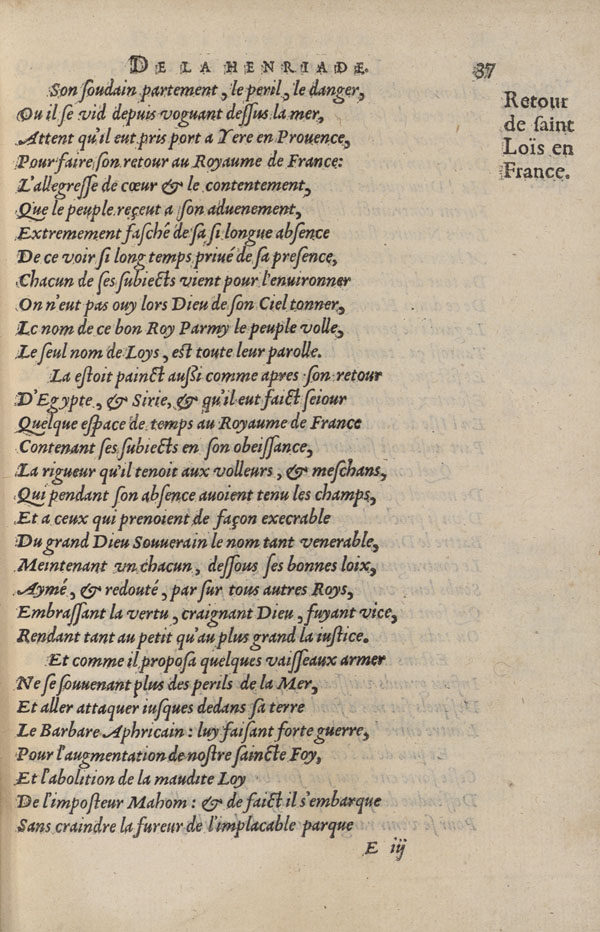 DE LA HENRIADE. 37
Son ſoudain partement, le peril, le danger,
Ou il ſe vid depuis voguant deſſus la mer,
Attent qu'il eut pris port a Yere en Prouence,
Pour faire ſon retour au Royaume de France:
L'allegreſſe de cœur & le contentement,
Que le peuple reçeut a ſon aduenement,
Extremement faſché de ſa ſi longue abſence
De ce voir ſi long temps priué de ſa preſence,
Chacun de ſes ſubiects vient pour l'enuironner
On n'eut pas ouy lors Dieu de ſon Ciel tonner,
Le nom de ce bon Roy Parmy le peuple volle,
Le ſeul nom de Loys, eſt toute leur parolle.
La eſtoit painct auſſi comme apres ſon retour
D'Egypte, & Sirie, & qu'il eut faict ſeiour
Quelque eſpace de temps au Royaume de France
Contenant ſes ſubiects en ſon obeiſſance,
La rigueur qu'il tenoit aux volleurs, & meſchans,
Qui pendant ſon abſence auoient tenu les champs,
Et a ceux qui prenoient de façon execrable
Du grand Dieu Souuerain le nom tant venerable,
Meintenant un chacun, deſſous ſes bonnes loix,
Aymé, & redouté, par ſur tous autres Roys,
Embraſſant la vertu, craignant Dieu, fuyant vice,
Rendant tant au petit qu'au plus grand la iuſtice.
Et comme il propoſa quelques vaiſſeaux armer
Ne ſe ſouuenant plus des perils de la Mer,
Et aller attaquer iuſques dedans ſa terre
Le Barbare Aphricain: luy faiſant forte guerre,
Pour l'augmentation de noſtre ſaincte Foy,
Et l'abolition de la maudite Loy
De l'impoſteur Mahom: & de faict il s'embarque
Sans craindre la fureur de l'implacable parque
E iij
Retour
de ſaint
Loïs en
France.